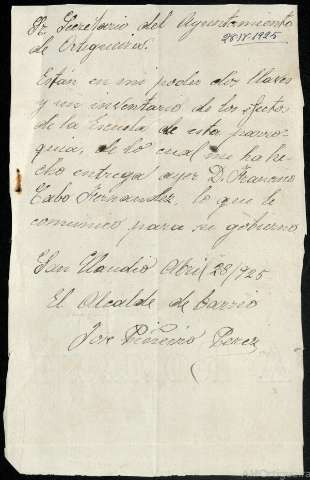 Sr Secretario del Ayuntamiento
de Ortigueira.
28 IV 1925
Están en mi poder dos llaves
y un inventario de los efectos
de la Escuela de esta parro-
quia, de lo cual me ha he-
cho entrega ayer D. Francisco
Cabo Fernández, lo que le
comunico para su gobierno
San Claudio Abril 28/925
El Alcalde de barrio
José Piñeiro Perez